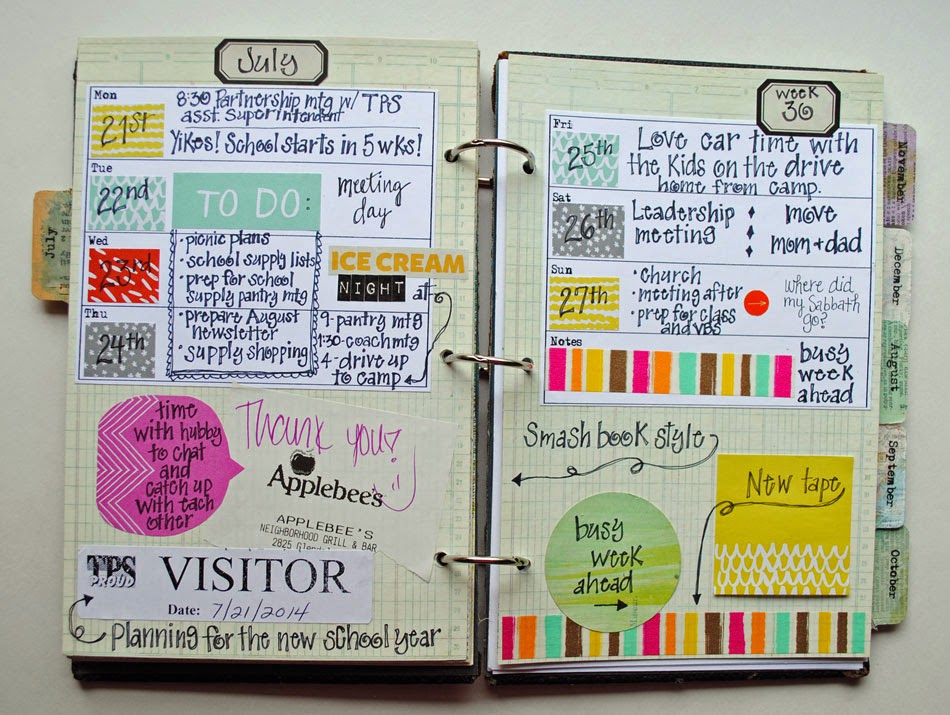 July
Mon
21st
8:30 Partnership mtg w/ TPS
asst. Superintendent
Yikes! School starts in 5 wks!
Tue
22nd
TO DO:
meeting
day
Wed
23rd
• picnic plans
• school supply lists
• prep for school
supply pantry mtg
• prepare August
newsletter
• supply shopping
ICE CREAM
NIGHT at
Thu
24th
9-pantry mtg
1:30-coach mtg
4-drive up
to camp
July
time
with hubby
to chat
and
catch up
with each
other
Thank you!
Applebee's
APPLEBEE'S
NEIGHBORHOOD GRILL & BAR
2825
TPS
PROUD
VISITOR
Date: 7/21/2014
Planning for the new school year
week
30
Fri
25th
Love car time with
the kids on the drive
home from camp.
Sat
26th
Leadership
meeting
move
mom + dad
Sun
27th
• church
• meeting after
• prep for class
and VBS
where did
my Sabbath
go?
Notes
busy
week
ahead
Smash book style
New tape
busy
week
ahead
November
December
August
September
October